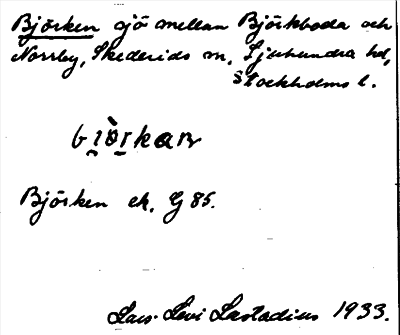 Björken sjö mellan Björkboda och
Norrby, Skederids sn, Sjuhundra hd,
Stockholms l.
Björken ek. G 85.
Lars-Levi Læstadius 1933.